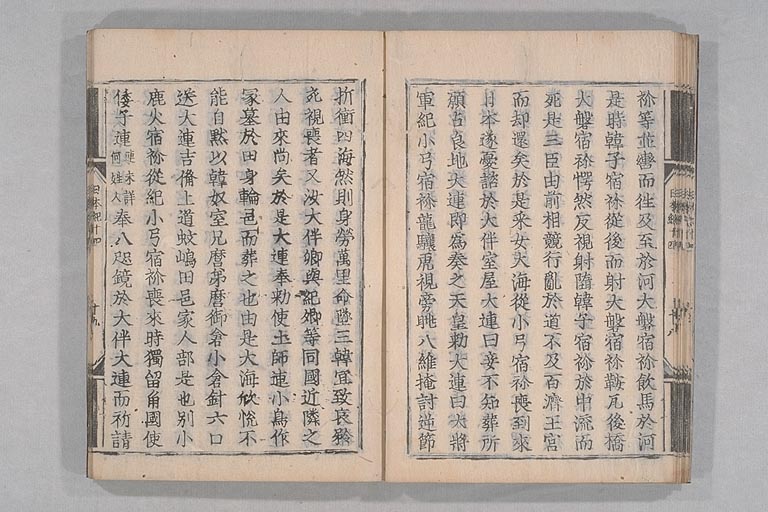 祢等並轡而往及至於河大磐宿祢飲馬於河
是時韓子宿祢從後而射大磐宿祢鞍瓦後橋
大磐宿祢愕然反視射墮韓子宿祢於中流而
死是三臣由前相競行亂於道不及百濟王宮
而却還矣於是采女大海從小弓宿祢喪到來
日本遂憂諮於大伴室屋大連曰妾不知葬所
願占良地大連即爲奏之天皇勅大連曰大將
軍紀小弓宿祢龍驤虎視旁眺八維掩討逆節
折衝四海然則身勞萬里命墜三韓宜致哀矜
充視喪者又汝大伴卿與紀卿等同國近隣之
人由來尚矣於是大連奉勅使土師連小鳥作
冢墓於田身輪邑而葬之也由是大海欣悅不
能自默以韓奴室兄麿弟麿御倉小倉針六口
送大連吉備上道蚊嶋田邑家人部是也別小
鹿火宿祢從紀小弓宿祢喪來時獨留角國使
倭子連連未詳何姓人奉八咫鏡於大伴大連而祈請
日本紀卄四